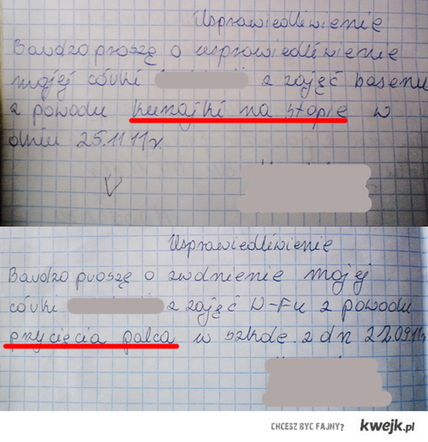 Usprawiedliwienie
Bardzo proszę o usprawiedliwienie
mojej córki z zajęć basenu
z powodu kurzajki na stopie w
dniu 25.11.11r.
Usprawiedliwienie
Bardzo proszę o zwolnienie mojej
córki z zajęć W-Fu z powodu
przycięcia palca w szkole z dn
CHCESZ BYĆ FAJNY? kwejk.pl